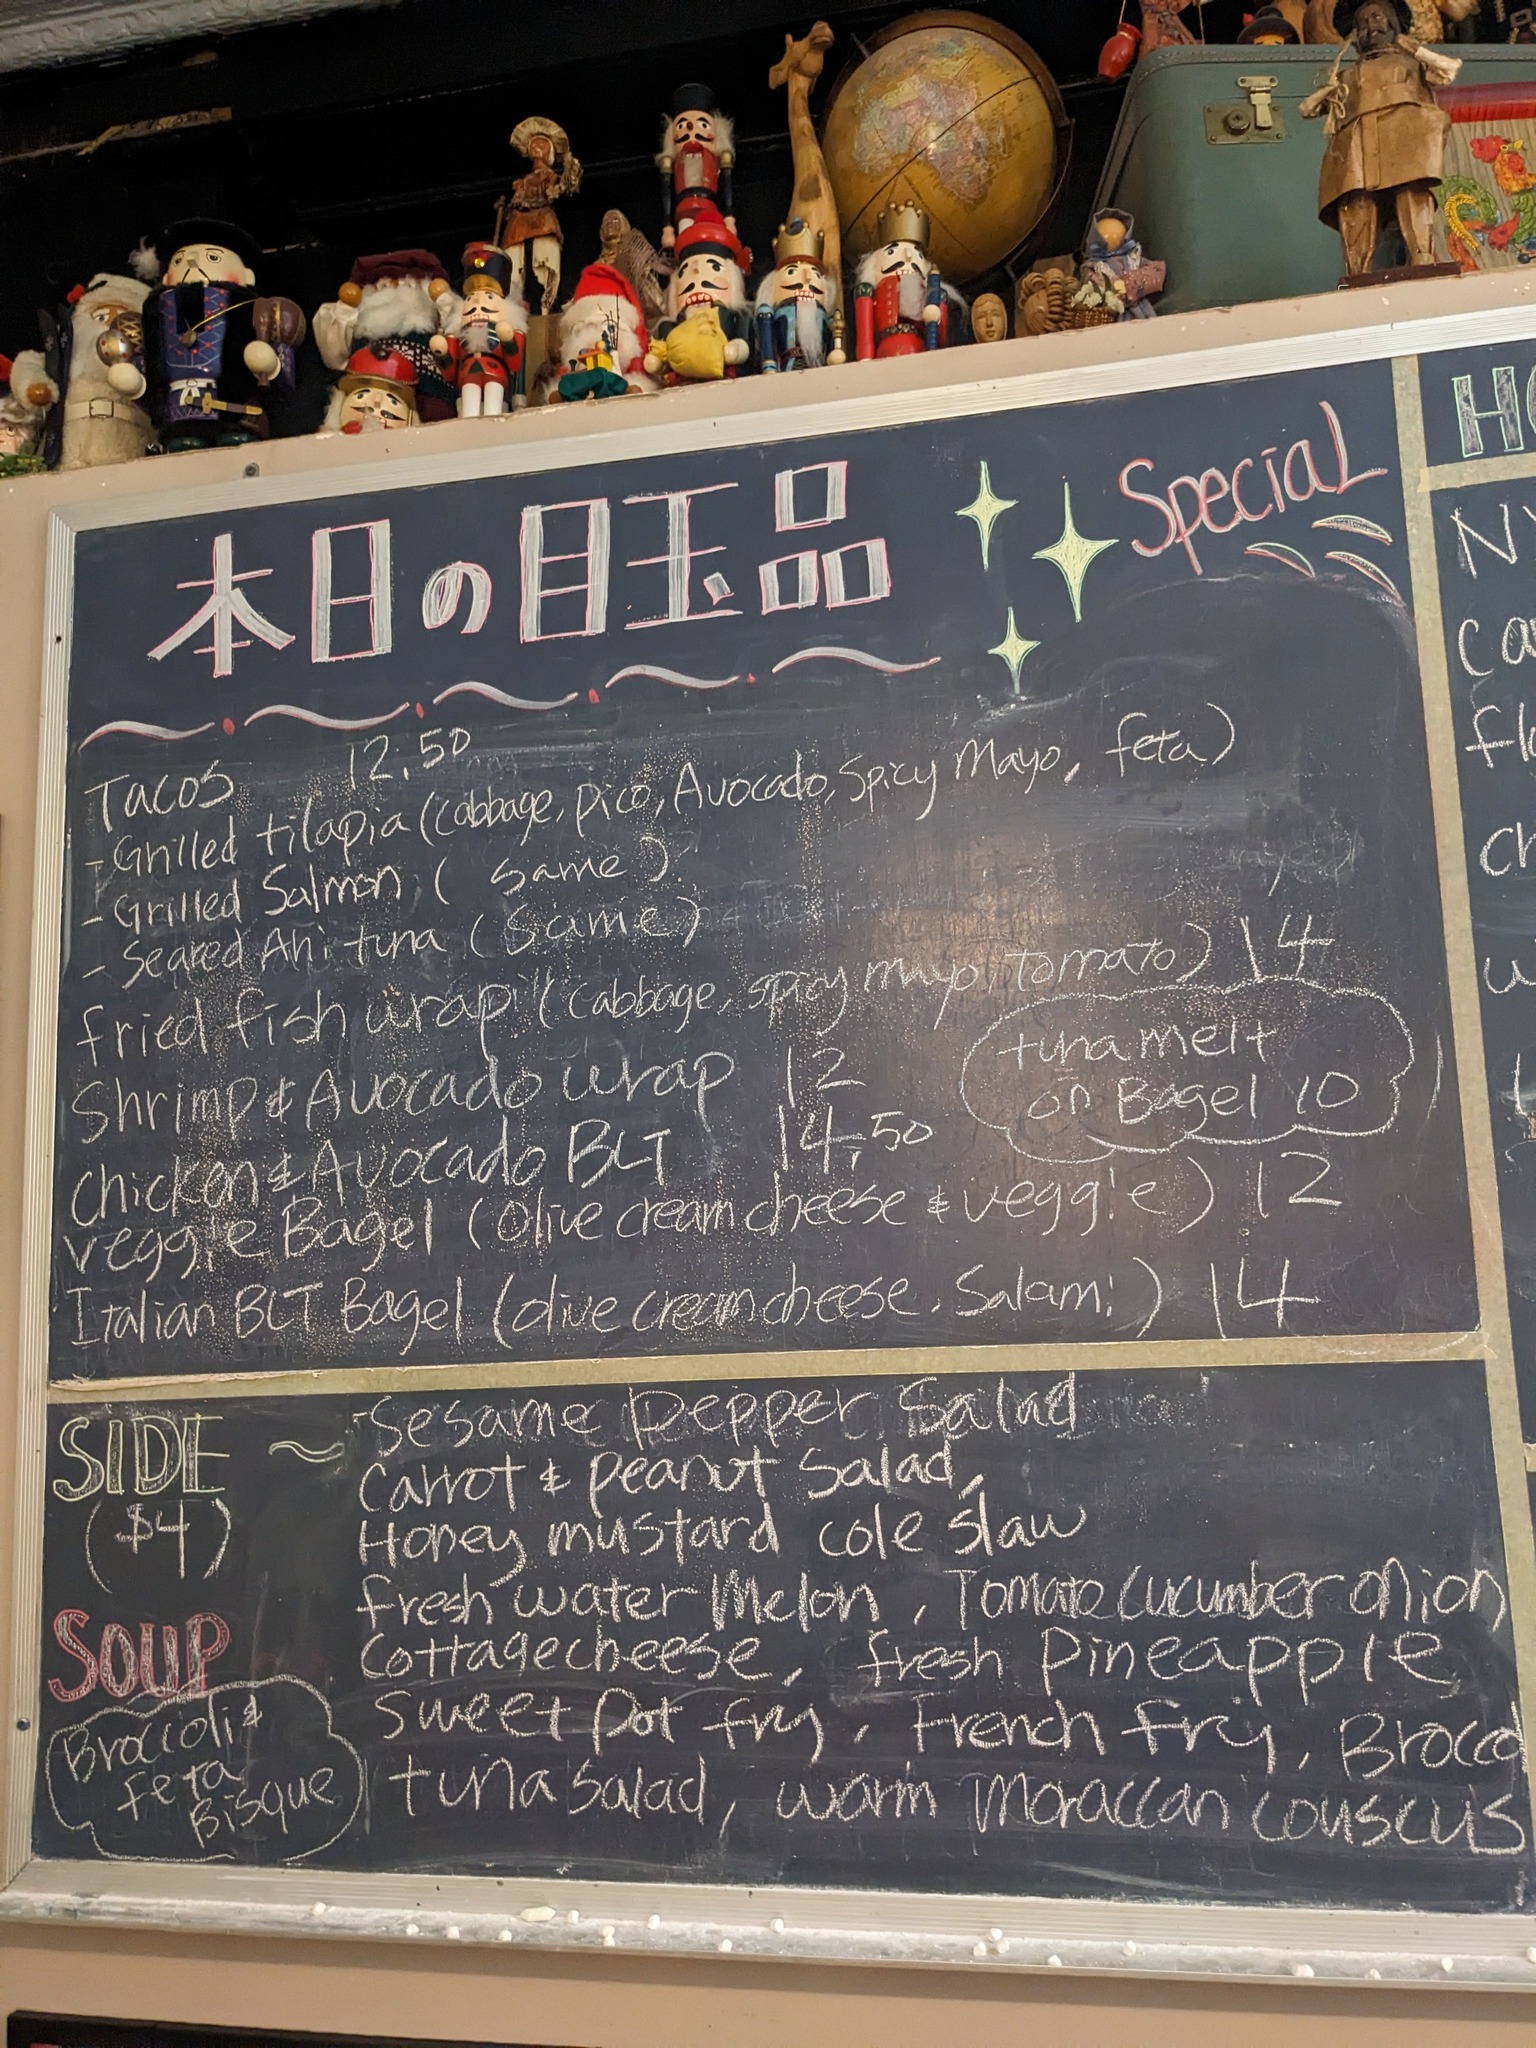 本日の目玉品 Special
Tacos 12.50
- Grilled tilapia (cabbage, pico, Avocado, Spicy Mayo, feta)
- Grilled Salmon ( same )
- Seared Ahi tuna ( same )
fried fish wrap (cabbage, spicy mayo, tomato) 14
Shrimp & Avocado wrap 12
tuna melt
on Bagel 10
Chicken & Avocado BLT 14.50
veggie Bagel (olive cream cheese & veggie) 12
Italian BLT Bagel (olive cream cheese, Salami) 14
SIDE ~ Sesame Pepper Salad
($4)
Carrot & peanut Salad,
Honey mustard cole slaw
fresh water Melon, Tomato cucumber onion
Cottage cheese, fresh pineapple
Sweet Pot fry, French fry, Brocco
tuna salad, warm Moraccan couscus
SOUP
Broccoli &
feta
Bisque